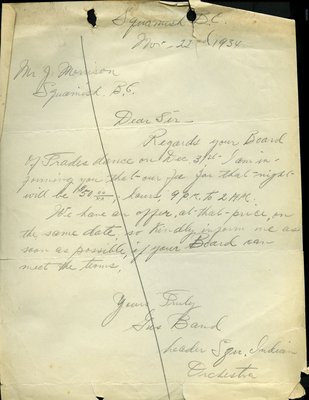 Squamish B.C.
Nov. 22nd 1934
Mr J. Morrison
Squamish. B.C.
Dear Sir —
Regards your Board
of Trades dance on Dec 31st I am in-
forming you that our fee for that night
will be $50 00/xx, hours, 9 P.M. to 2 A.M.
We have an offer at that price, on
the same date so kindly inform me as
soon as possible, if your Board can
meet the terms.
Yours Truly
Gus Band
leader Squ. Indian
Orchestra